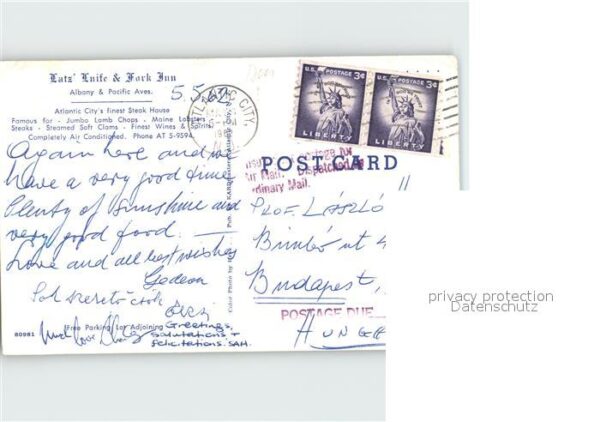 Latz' Knife & Fork Inn
Albany & Pacific Aves.
5.5.62
Atlantic City's Finest Steak House
Famous for - Jumbo Lamb Chops - Maine Lobsters
Steaks - Steamed Soft Clams - Finest Wines & Spirits
Completely Air Conditioned. Phone AT 5-9594
Again here and we
have a very good time
Plenty of sunshine and
very good food.
Love and all best wishes
Gedeon
Sok szerető csók
Free Parking Lot Adjoining
Much love
Greetings,
salutations +
felicitations. SAH.
80981
ATLANTIC CITY,
U.S. POSTAGE 3¢
LIBERTY
U.S. POSTAGE 3¢
LIBERTY
POST CARD
for
Air Mail. Dispatched by
Ordinary Mail.
Prof. László
Bimbó út 4
Budapest,
POSTAGE DUE
privacy protection
Datenschutz